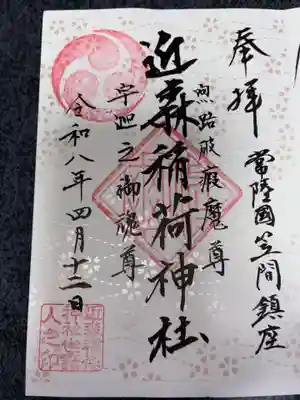 奉拝
常陸國笠間鎮座
近森稲荷神社
宇迦之御魂尊
令和八年四月十二日